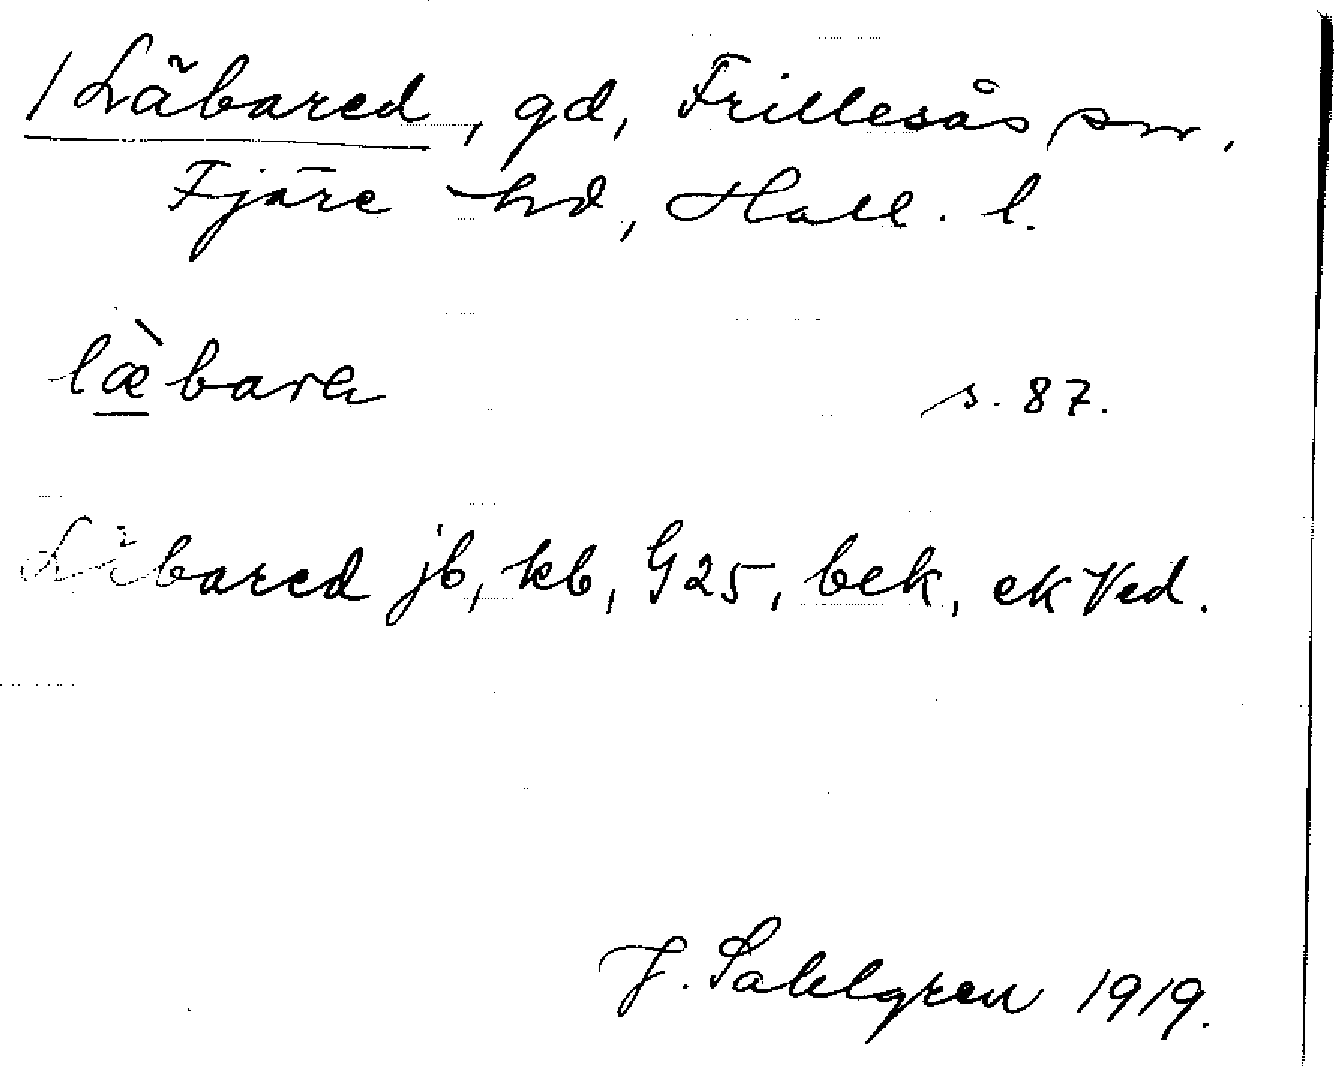 / Läbared, gd, Frillesås sn,
Fjäre hd, Hall. l.
lǣ̀bara s. 87.
Läbared jb, kb, G25, bek, ek Ved.
J. Sahlgren 1919.